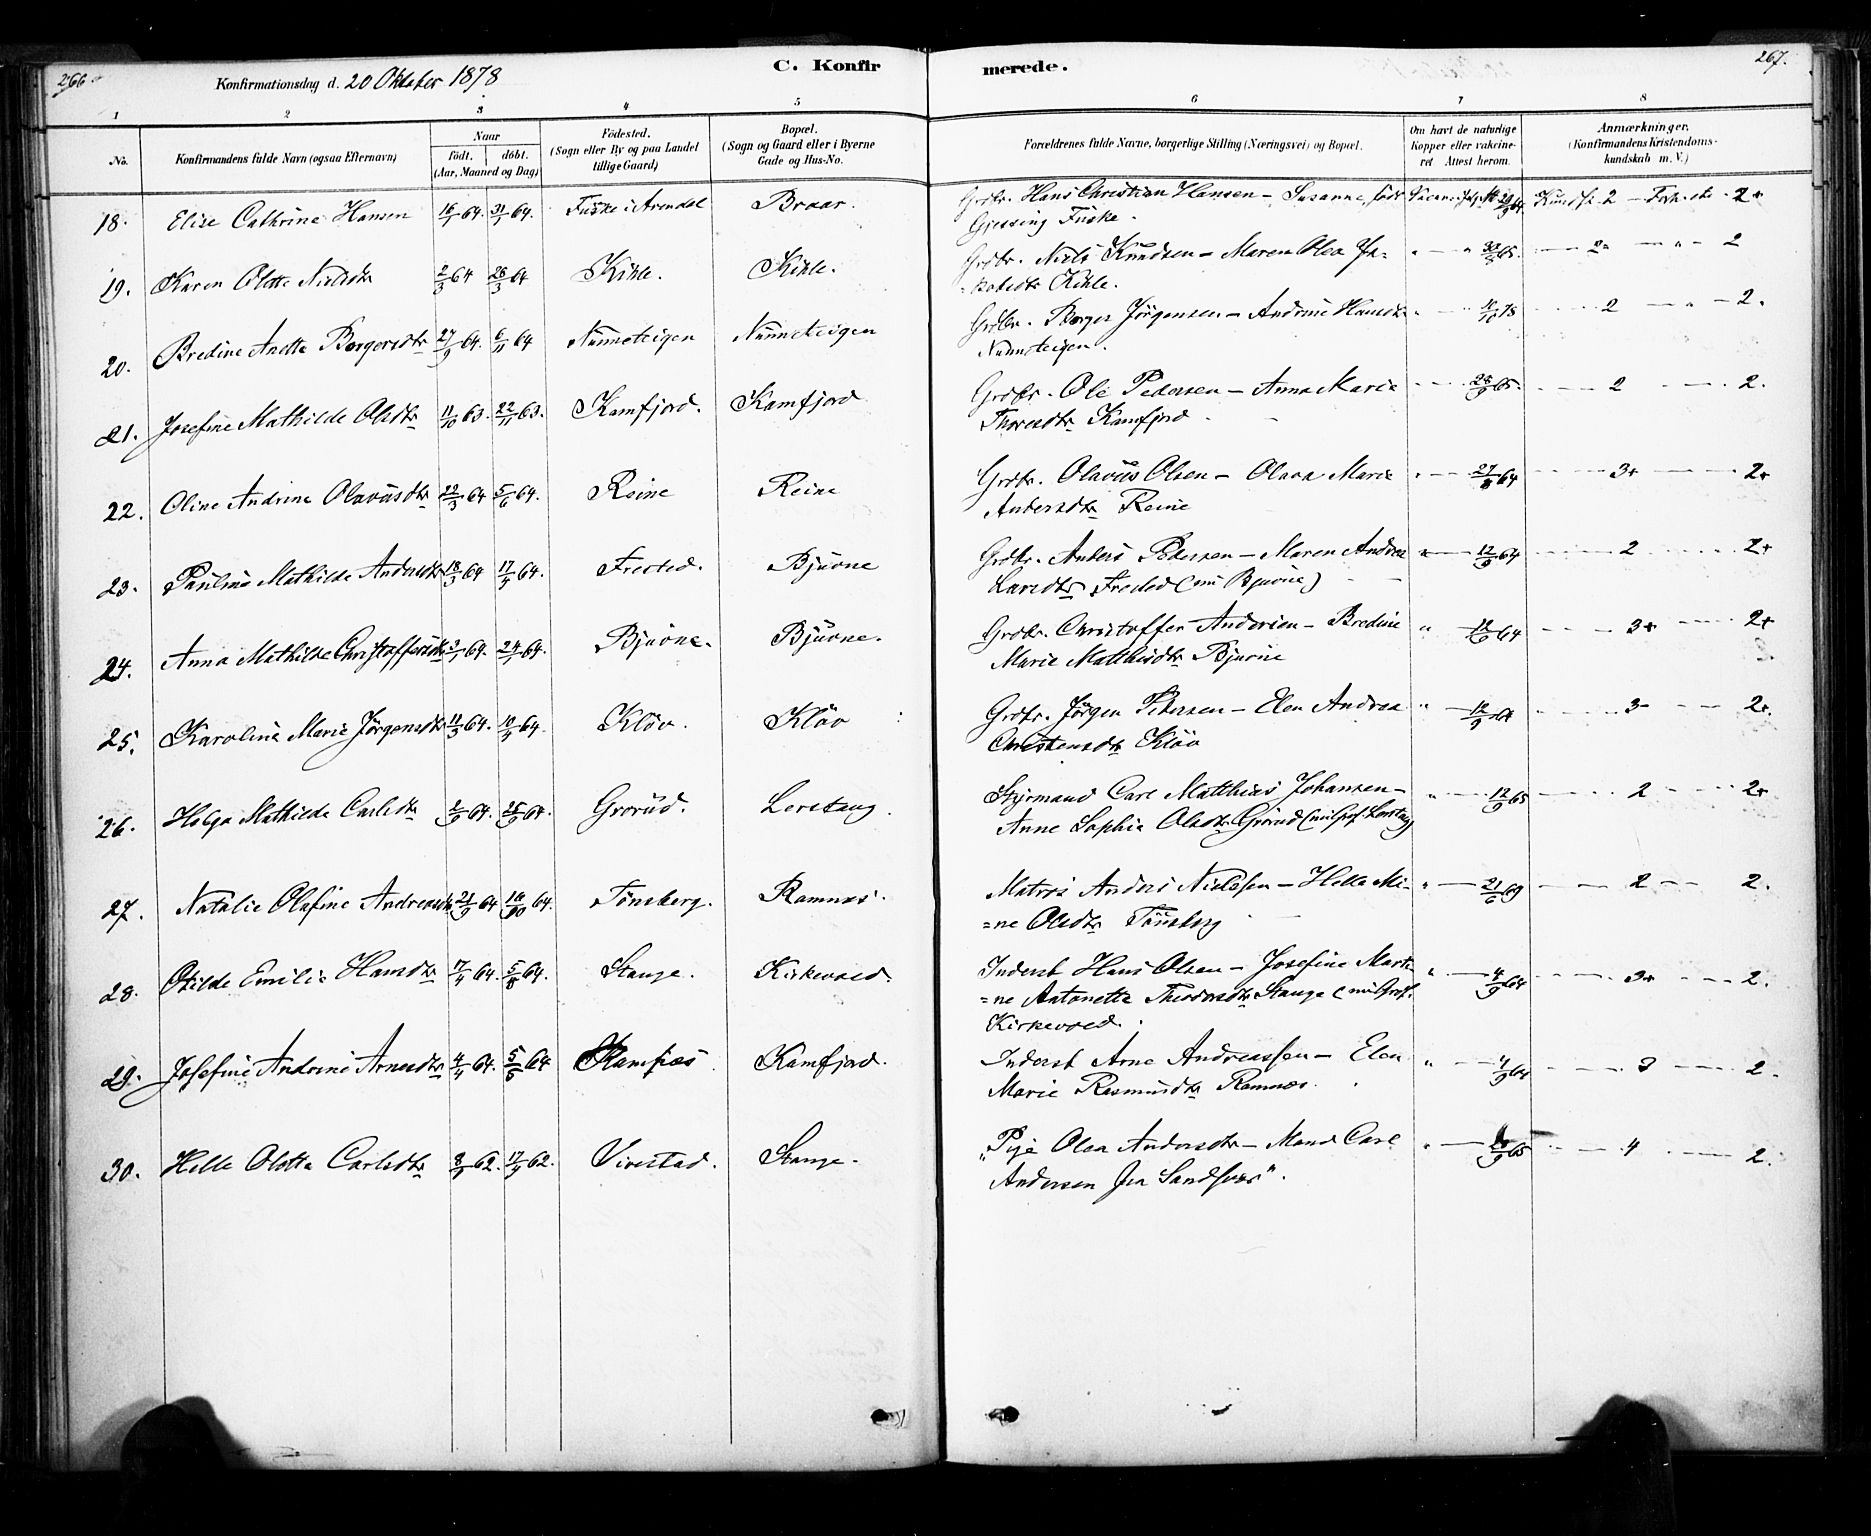 266.
Konfirmationsdag d. 20 Oktober 1878
C. Konfirmerede.
267.
1 2 3 4 5 6 7 8
No.
Konfirmandens fulde Navn (ogsaa Efternavn)
Naar
født. døbt.
(Aar, Maaned og Dag)
Fødested.
(Sogn eller By og paa Landet
tillige Gaard)
Bopæl.
(Sogn og Gaard eller i Byerne
Gade og Hus-No.
Forældrenes fulde Navne, borgerlige Stilling (Næringsvei) og Bopæl.
Om havt de naturlige
Kopper eller vakcine-
ret Attest herom.
Anmærkninger.
(Konfirmandens Kristendoms-
kundskab m. V.)
18. Elise Cathrine Hansen 16/1 64. 31/1 64. i Arendal Braar. Grdbr. Hans Christian Hansen – Susanne, født
Gjessing
19. Karen Olette Nielsdtr 2/3 64 28/3 64 Kihle. Kihle. Grdbr. Niels Knudsen – Maren Olea Ja-
=kobsdtr Kihle. 2 – " – 2
20. Bredine Anette Borgersdtr 27/9 64. 6/11 64 Nunsteigen Nunsteigen Grdbr. Borger Jörgensen – Andrine Hansdtr 10/10 78 2 – " – 2.
Nunsteigen.
21. Josefine Mathilde Olsdtr 11/10 63. 22/11 63. Kamfjord. Kamfjord Grdbr. Ole Pedersen – Anna Maria 2 2.
Thoresdtr Kamfjord
22. Oline Andrine Olavusdtr 22/3 64 5/6 64. Reine Reine Grdbr. Olavus Olsen – Olava Marie 27/8 64 3+ 2+
Andersdtr Reine
23. Pauline Mathilde Andersdtr 18/3 64 17/5 64. Frested. Bjuone Grdbr. Anders Pedersen – Maren Andrea 12/9 64 2 2+
Larsdtr Frested (nu Bjuone)
24. Anna Mathilde Christoffersdtr 3/1 64. 24/1 64. Bjuone. Bjuone. Grdbr. Christoffer Andersen – Bredine 12/9 64 3+ 2+
Marie Matthisdtr Bjuone
25. Karoline Marie Jörgensdtr 11/3 64. 10/4 64. Klöv. Klöv Grdbr. Jörgen Petersen – Elen Andrea 12/9 64 3– 2+.
Christensdtr Klöv
26. Helga Mathilde Carlsdtr 2/9 64. 25/9 64. Grorud. Lerstang Styrmand Carl Matthias Johansen – 12/9 65 2 2+
Anne Sophie Olsdtr Grorud (nu Lerstang)
27. Natalie Olafine Andreasdtr 21/9 64 16/10 64. Tönsberg. Ramnæs. Matros Anders Nielssen – Helle Mi- 21/6 69 2 2.
=ne Olsdtr Tönsberg
28. Otilde Emilie Hansdtr 17/4 64. 5/8 64. Stange. Kirkevold. Inderst Hans Olsen – Josefine Marti- 4/9 64 3+ 2.
=ne Antonette Theodorsdtr Stange (nu
Kirkevold.
29. Josefine Andrine Arnesdtr 4/4 64. 5/6 64 Kamfjord. Inderst Arne Andreassen – Elen 4/9 64 3 2.
Marie Rasmusdtr Ramnæs.
30. Helle Olette Carlsdtr 3/9 62. 17/9 62. Vivestad. Stange. "Pige Olea Andersdtr – Mand Carl 4 2.
Andersen fra Sandsvær".